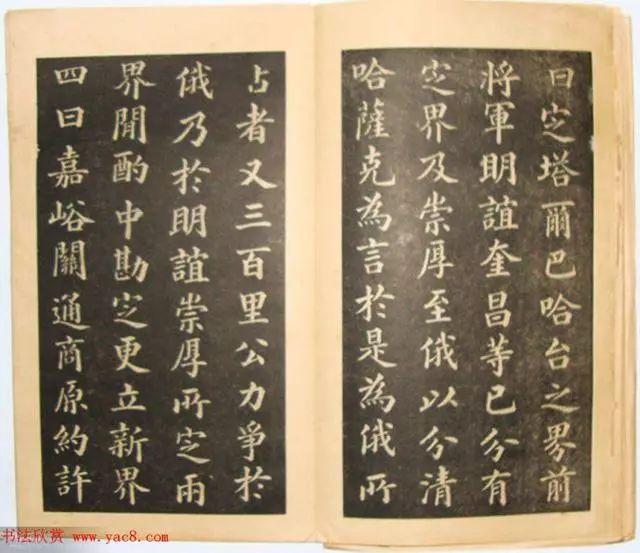 曰定塔爾巴哈台之界前
將軍明誼奎昌等已分有
定界及崇厚至俄以分清
哈薩克為言於是為俄所
占者又三百里公力爭於
俄乃於明誼崇厚所定兩
界閒酌中勘定更立新界
四曰嘉峪關通商原約許
书法欣赏 www.yac8.com